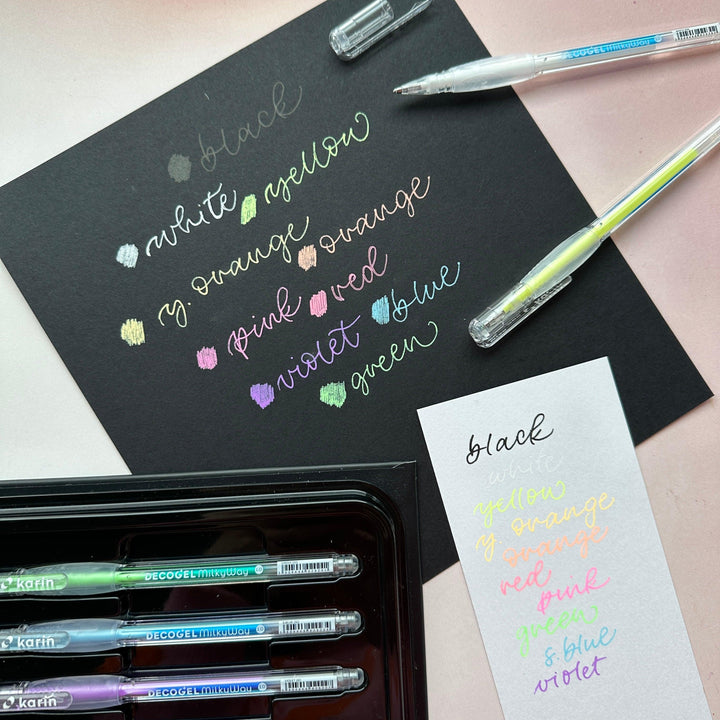 black
white yellow
y. orange orange
pink red
violet blue
green
DECOGEL MilkyWay
black
white
yellow
y. orange
orange
red
pink
green
s. blue
violet
karin DECOGEL MilkyWay 1.0
karin DECOGEL MilkyWay 1.0
karin DECOGEL MilkyWay 1.0